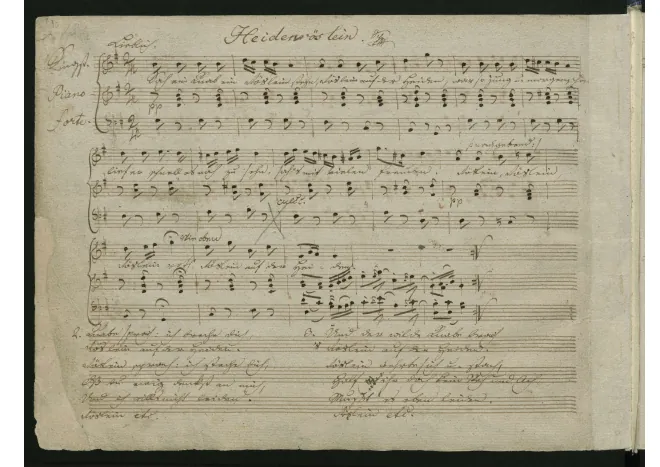 Lieblich. Heidenröslein.
Singst.
Sah ein Knab ein Röslein stehn, Röslein auf der Heiden, war so jung u morgenschön
Piano
pp
Forte.
nachgebend
lief er schnell es nah zu sehn, sah's mit vielen Freuden. Röslein, Röslein
pp
wie oben
Röslein roth, Röslein auf der Hei - den
2. Knabe sprach: ich breche dich
Röslein auf der Heiden.
Röslein sprach: ich steche dich,
Daß du ewig denkst an mich,
Und ich will's nicht leiden.
Röslein etc.
3. Und der wilde Knabe brach
's Röslein auf der Heiden.
Röslein wehrte sich u stach,
Half ihr doch kein Weh und Ach
Mußt es eben leiden.
Röslein etc.